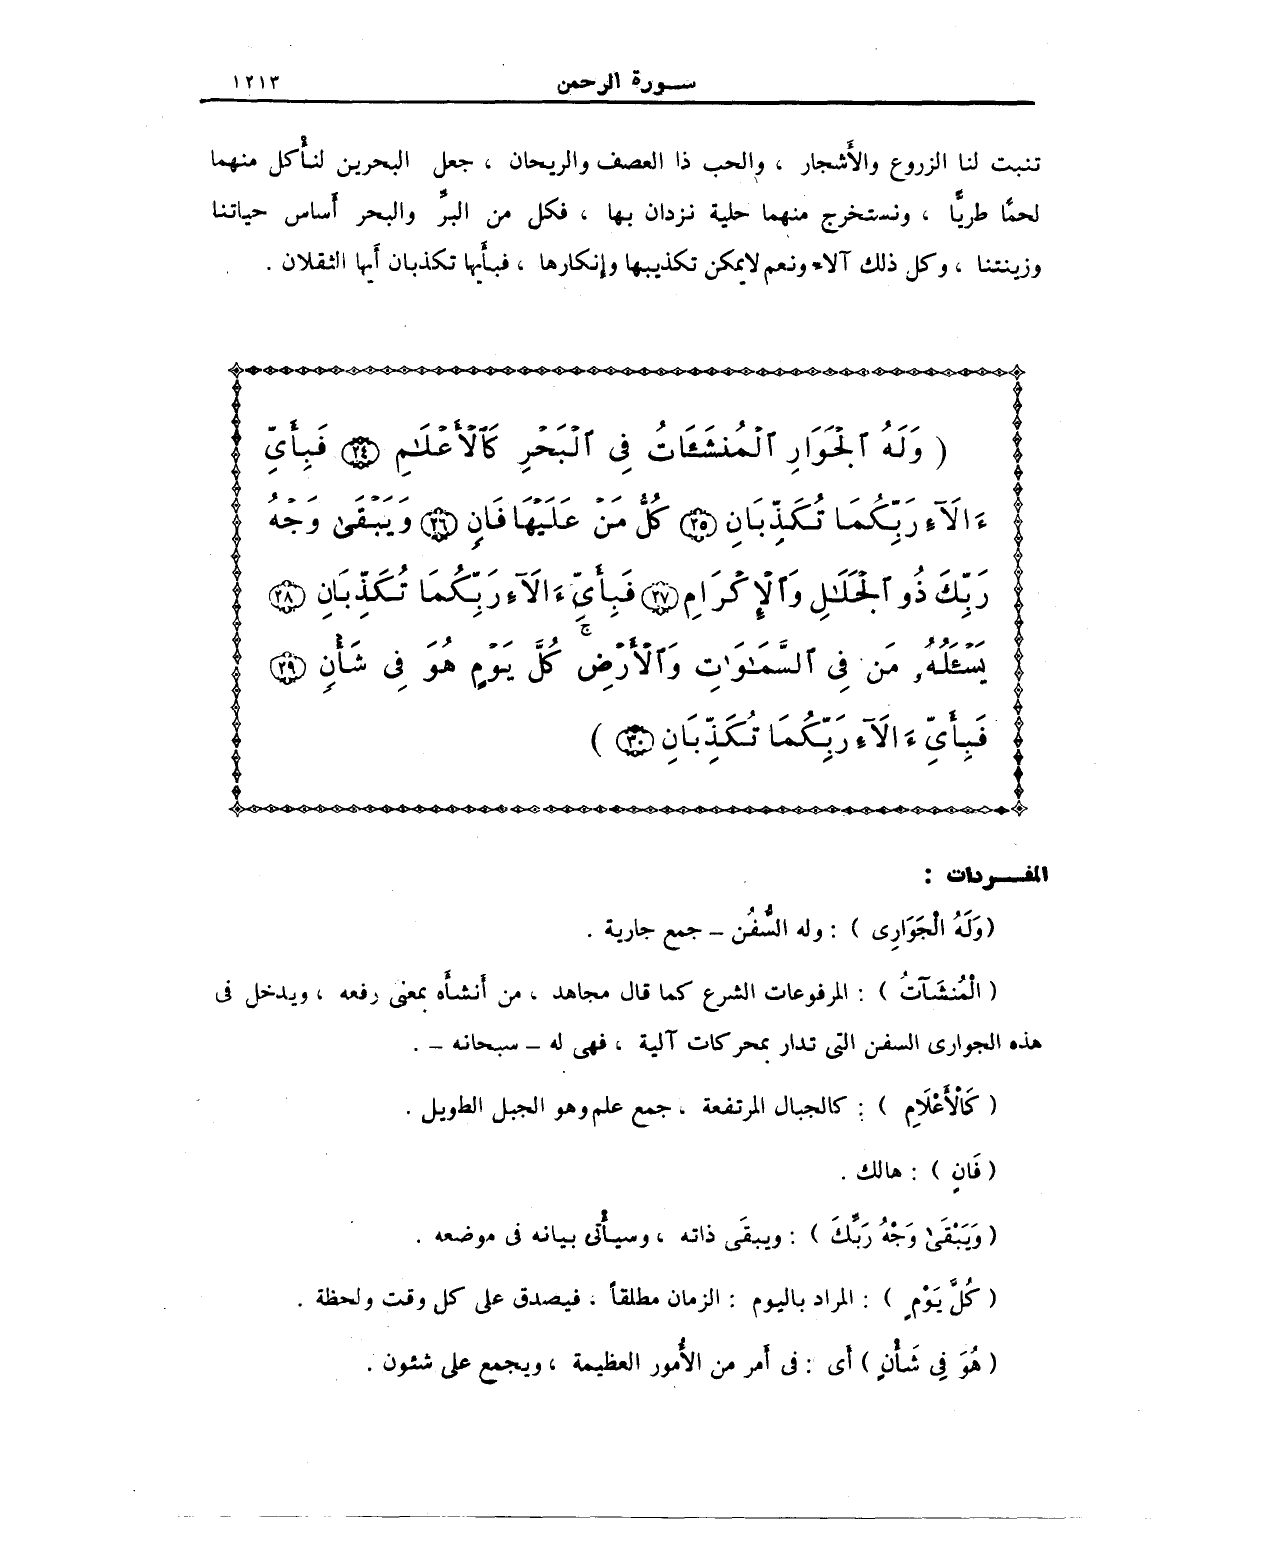 سورة الرحمن ١٢١٣
تنبت لنا الزروع والأَشجار ، والحب ذا العصف والريحان ، جعل البحرين لنأْكل منهما
لحمًا طريًّا ، ونستخرج منهما حلية نزدان بها ، فكل من البرِّ والبحر أَساس حياتنا
وزينتنا ، وكل ذلك آلاء ونعم لايمكن تكذيبها وإنكارها ، فبأَيها تكذبان أَيها الثقلان .
( وَلَهُ ٱلْجَوَارِ ٱلْمُنشَـَٔاتُ فِى ٱلْبَحْرِ كَٱلْأَعْلَـٰمِ ﴿٢٤﴾ فَبِأَىِّ
ءَالَآءِ رَبِّكُمَا تُكَذِّبَانِ ﴿٢٥﴾ كُلُّ مَنْ عَلَيْهَا فَانٍ ﴿٢٦﴾ وَيَبْقَىٰ وَجْهُ
رَبِّكَ ذُو ٱلْجَلَـٰلِ وَٱلْإِكْرَامِ ﴿٢٧﴾ فَبِأَىِّ ءَالَآءِ رَبِّكُمَا تُكَذِّبَانِ ﴿٢٨﴾
يَسْـَٔلُهُۥ مَن فِى ٱلسَّمَـٰوَٰتِ وَٱلْأَرْضِ ۚ كُلَّ يَوْمٍ هُوَ فِى شَأْنٍ ﴿٢٩﴾
فَبِأَىِّ ءَالَآءِ رَبِّكُمَا تُكَذِّبَانِ ﴿٣٠﴾ )
المفـــردات :
(وَلَهُ الْجَوَارِى ) : وله السُّفُن – جمع جارية .
( الْمُنشَآتُ ) : المرفوعات الشرع كما قال مجاهد ، من أَنشأَه بمعنى رفعه ، ويدخل فى
هذه الجوارى السفن التى تدار بمحركات آلية ، فهى له – سبحانه – .
( كَالْأَعْلَامِ ) : كالجبال المرتفعة ، جمع علم وهو الجبل الطويل .
( فَانٍ ) : هالك .
( وَيَبْقَىٰ وَجْهُ رَبِّكَ ) : ويبقَى ذاته ، وسيأْتى بيانه فى موضعه .
( كُلَّ يَوْمٍ ) : المراد باليوم : الزمان مطلقاً ، فيصدق على كل وقت ولحظة .
( هُوَ فِى شَأْنٍ ) أَى : فى أَمر من الأُمور العظيمة ، ويجمع على شئون .